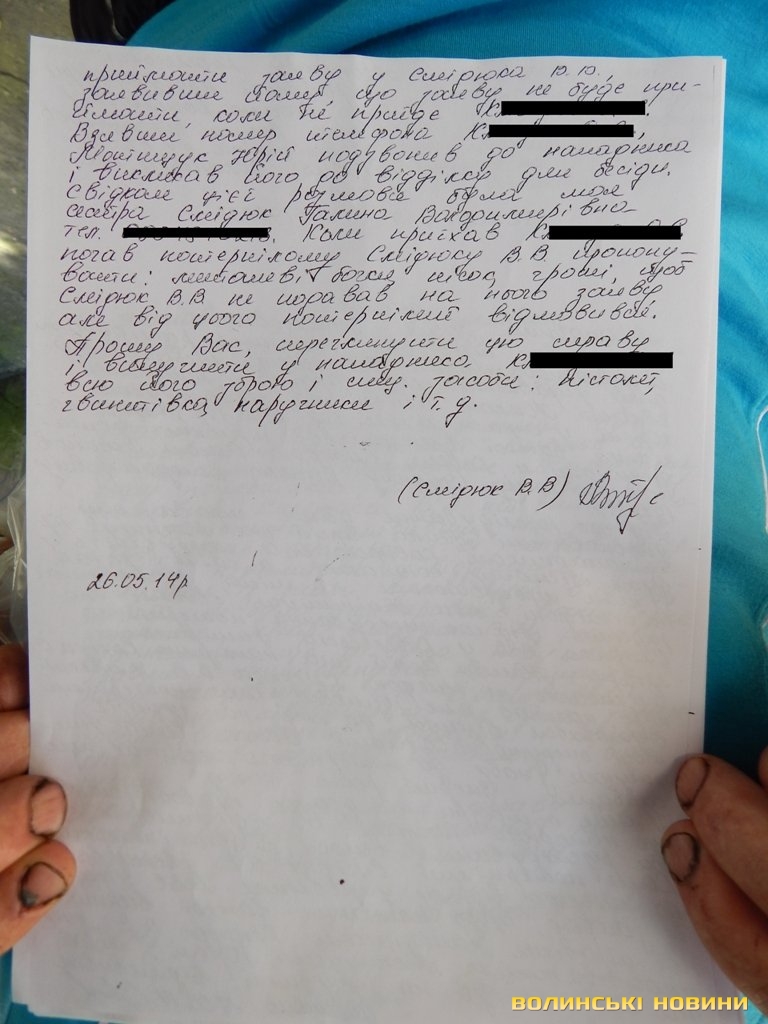 приймати заяву у Смідюка В.В.,
заявивши йому, що заяву не буде при-
ймати, коли не приїде К
Взявши номер телефона К
Мотищук Юрій подзвонив до нападника
і викликав його до відділку для бесіди.
Свідком цієї розмови була моя
сестра Смідюк Галина Володимирівна
тел. Коли приїхав К
почав потерпілому Смідюку В.В пропону-
вати: металеві бочки, пісок, гроші, щоб
Смідюк В.В не подавав на нього заяву,
але від цього потерпілий відмовився.
Прошу Вас, переглянути цю справу
і вилучити у нападника К
всю його зброю і спец. засоби: пістолет,
гвинтівка, наручники і т.д.
(Смідюк В.В)
26.05.14р.
ВОЛИНСЬКІ НОВИНИ